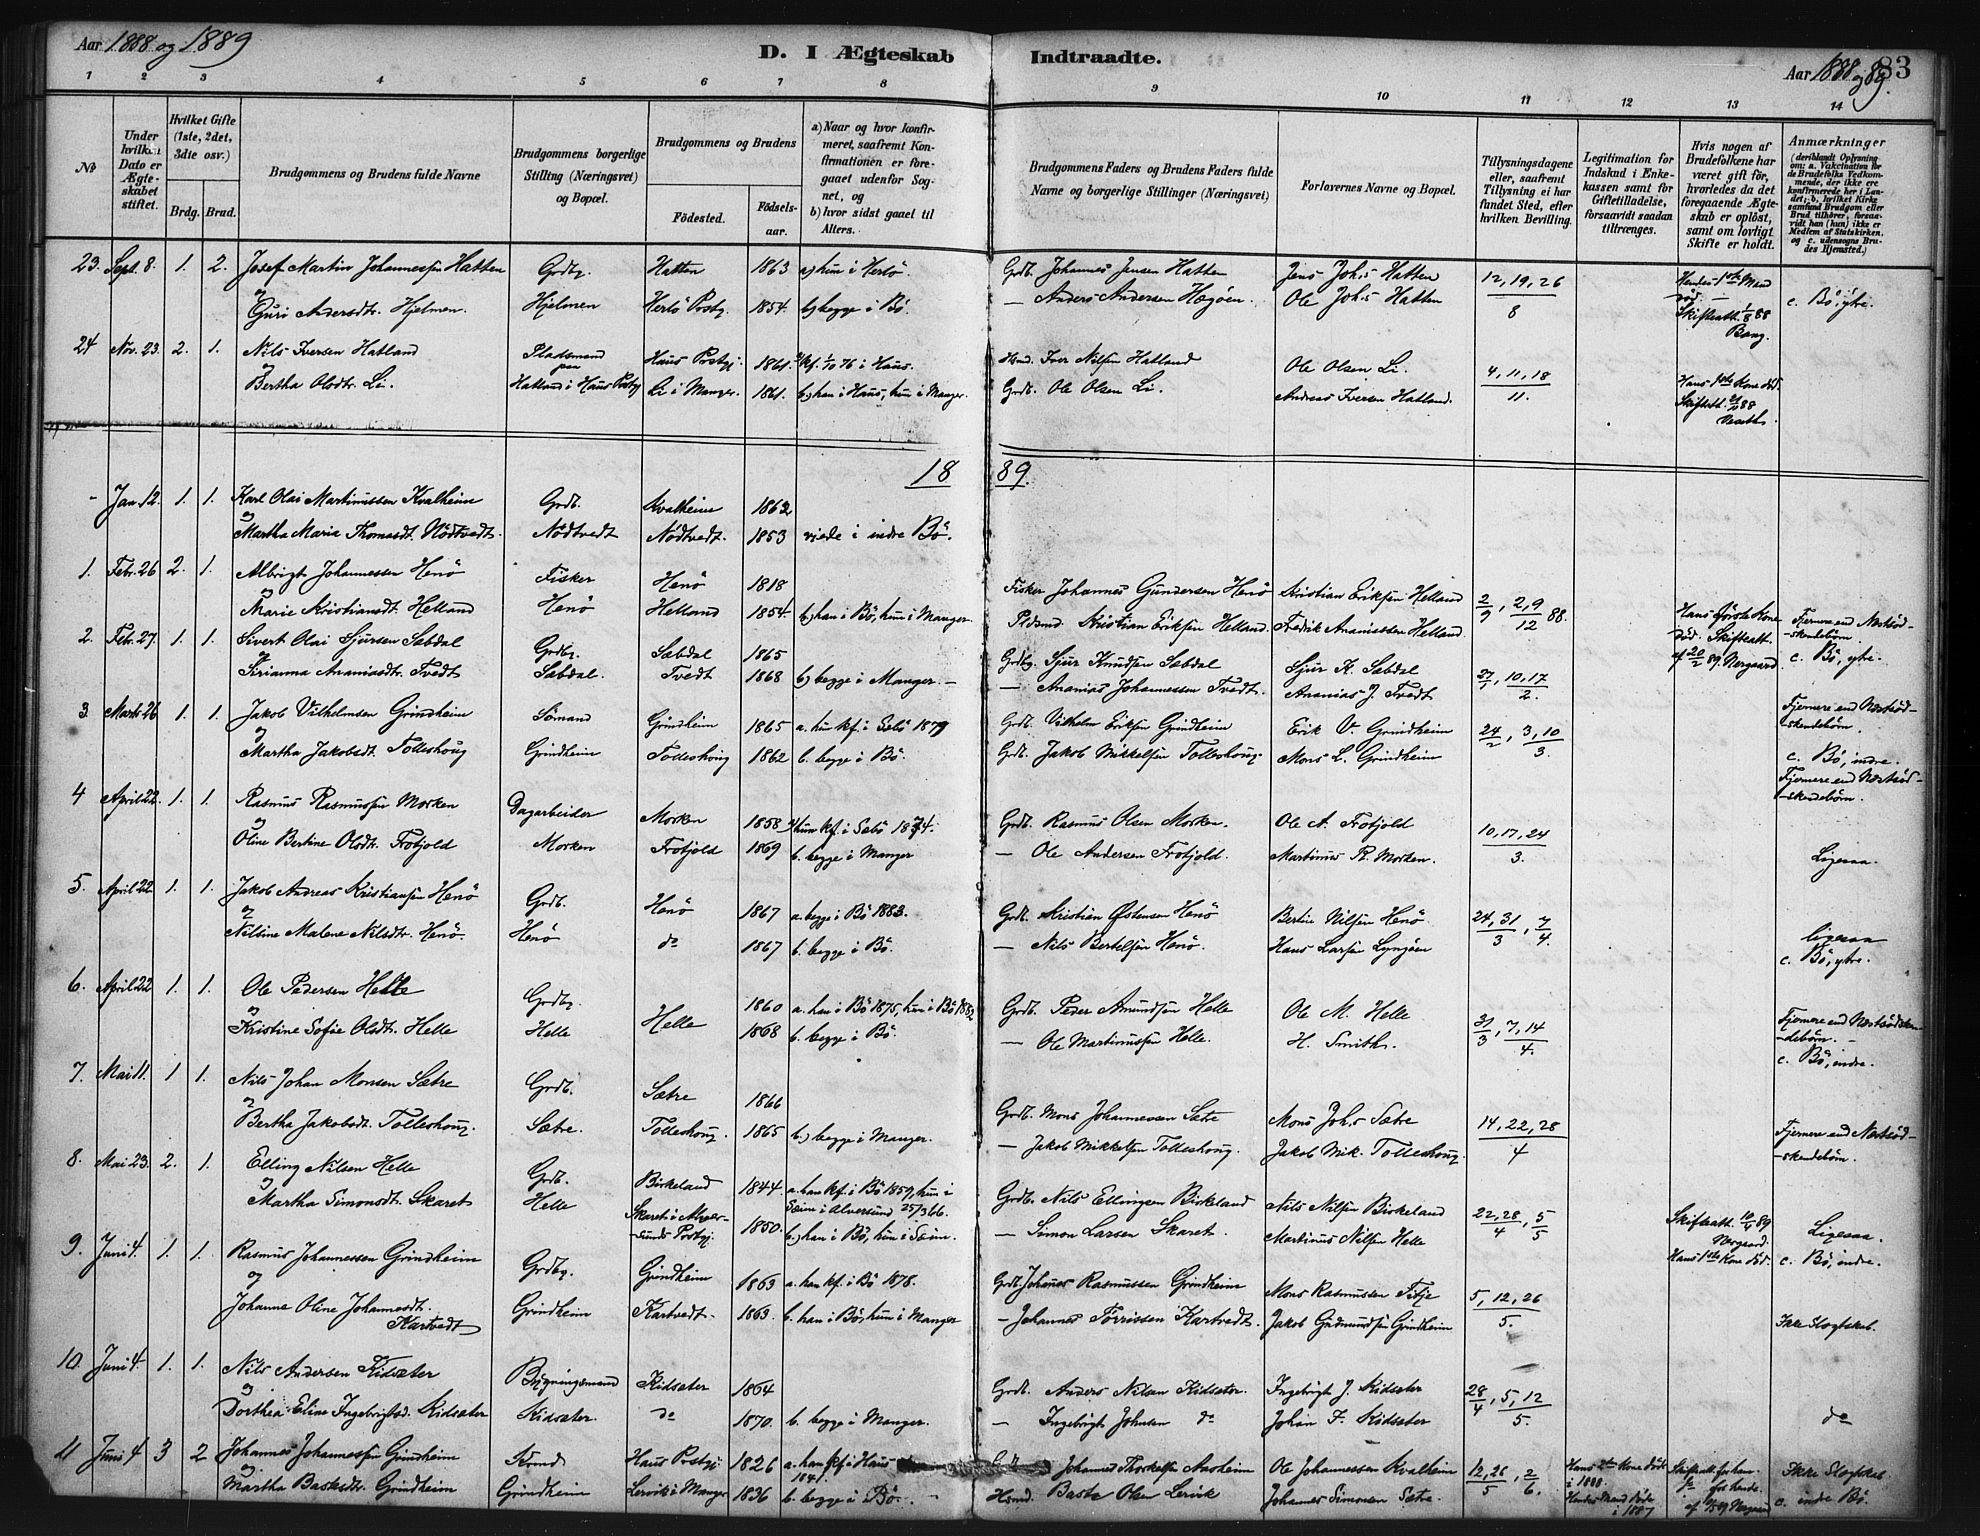 Aar 1888 og 1889
D. I Ægteskab Indtraadte.
Aar 1888 og 89.
83
1 2 3 4 5 6 7 8 9 10 11 12 13 14
No
Under hvilken Dato er Ægteskabet stiftet.
Hvilket Gifte (1ste, 2det, 3die osv.)
Brdg. Brud.
Brudgommens og Brudens fulde Navne
Brudgommens borgerlige Stilling (Næringsvei) og Bopæl.
Brudgommens og Brudens
Födested. Födsels-aar.
a) Naar og hvor konfirmeret, saafremt Konfirmationen er foregaaet udenfor Sognet, og
b) hvor sidst gaaet til Alters.
Brudgommens Faders og Brudens Faders fulde Navne og borgerlige Stillinger (Næringsvei)
Forlovernes Navne og Bopæl.
Tillysningsdagene eller, saafremt Tillysning ei har fundet Sted, efter hvilken Bevilling.
Legitimation for Indskud i Enkekassen samt for Giftetilladelse, forsaavidt saadan tiltrænges.
Hvis nogen af Brudefolkene har været gift för, hvorledes da det foregaaende Ægteskab er oplöst, samt om lovligt Skifte er holdt.
Anmærkninger
(deriblandt Oplysning om: a. Vakcination for de Brudefolks Vedkommende, der ikke ere konfirmerede her i Landet; b. hvilket Kirkesamfund Brudgom eller Brud tilhører, forsaavidt han (hun) ikke er Medlem af Statskirken, og c. udensogns Brudes Hjemsted.)
23. Sept. 8. 1. 2. Josef Martin Johannessen Hatten Grdbg. Hatten 1863 a) hun i Herlö. Grdb. Johannes Jensen Hatten Jens Johs Hatten 12, 19, 26 Hendes 1ste Mand
og Guri Andersdtr. Hjelmen. Hjelmen Herlö Prstgj. 1854. b) begge i Bö. — Anders Andersen Hægöen. Ole Johs Hatten 8 död. — Skifteatt. 1/8 88 Bang. c. Bö, ytre.
24 Nov. 23. 2. 1. Nils Iversen Hatland Pladsmand paa Haus Prstgj. 1861. kf. 1/10 76 i Haus. Hsmd. Iver Nilsen Hatland Ole Olsen Li. 4, 11, 18
og Bertha Olsdtr. Li. Hatland i Haus Prstgj. Li i Manger. 1861. b) han i Haus, hun i Manger. Grdb. Ole Olsen Li. Andreas Iversen Hatland. 11. Hans 1ste Kone död. Skifteatt.
1889.
- Jan. 12. 1. 1. Karl Olai Martinussen Kvalheim Grdb. Kvalheim 1862
og Martha Marie Thomasdt. Nödtvedt. Nödtvedt Nödtvedt. 1853 viede i indre Bö.
1. Febr. 26 2. 1. Albrigt Johannessen Henö Fisker Henö 1818 Fisker Johannes Gundersen Henö Kristian Eriksen Helland 2/9, 2, 9/12 88. Hans förste Kone Fjernere end Næstsöd-
og Marie Kristiansdt. Helland Henö Helland 1854. b) han i Bö, hun i Manger. Pldsmd. Kristian Eriksen Helland. Fredrik Ananiassen Helland. död. Skifteatt. af 20/2 89. Nergaard -skendebörn. c. Bö, ytre.
2. Febr. 27. 1. 1. Sivert Olai Sjursen Sæbdal Grdbg. Sæbdal 1865 Grdbg. Sjur Knudsen Sæbdal Sjur K. Sæbdal 27/1, 10, 17
og Sirianna Ananiasdt. Tvedt Sæbdal. Tvedt 1868 b) begge i Manger. — — Ananias Johannessen Tvedt. Ananias J. Tvedt 2. Fjernere end Næstsöd-
3. Marts 26 1. 1. Jakob Vilhelmsen Grindheim Sömand Grindheim 1865 a. hun kf. i Sæbö 1879 Grdb. Vilhelm Eriksen Grindheim Erik V. Grindheim 24/2, 3, 10 -skendebörn.
og Martha Jakobsdt. Tolleshoug Grindheim Tolleshoug 1862 b. begge i Bö. Grdb. Jakob Mikkelsen Tolleshoug. Mons L. Grindheim 3. c. Bö, indre. Fjernere end Næstsöd-
4 April 22. 1. 1. Rasmus Rasmussen Morken Dagarbeider Morken 1858 hun kf. i Sæbö 1874. Grdb. Rasmus Olsen Morken. Ole A. Frotjold 10, 17, 24 -skendebörn.
og Oline Bertine Olsdtr. Frotjold Morken Frotjold 1869 b. begge i Manger — Ole Andersen Frotjold. Martinus R. Morken. 3. Ligesaa.
5. April 22 1. 1. Jakob Andreas Kristiansen Henö Grdb. Henö 1867 a. begge i Bö 1883. Grdb. Kristian Östensen Henö Bertin Nilsen Henö 24, 31/3, 7/4.
og Nilsine Malene Nilsdtr. Henö. Henö do 1867 b. begge i Bö. — Nils Bertelsen Henö. Hans Larsen Lyngöen ligesaa c. Bö, ytre.
6. April 22 1. 1. Ole Pedersen Helle Grdbg. Helle 1860 a. han i Bö 1875, hun i Bö 1882 Grdb. Peder Amundsen Helle Ole M. Helle 31/3, 7, 14 Fjernere end Næstsödsken-
og Kristine Sofie Olsdt. Helle Helle 1868 b. begge i Bö. — Ole Martinussen Helle. H. Smith. 4. -debörn. — c. Bö, indre.
7. Mai 11. 1 1. Nils Johan Monsen Sætre Grdb. Sætre 1866 Grdb. Mons Johannessen Sætre Mons Johs Sætre 14, 22, 28
og Bertha Jakobsdt. Tolleshoug. Sætre. Tolleshoug. 1865 b) begge i Manger. — Jakob Mikkelsen Tolleshoug. Jakob Mik. Tolleshoug. 4 Fjernere end Næstsöd- -skendebörn.
8. Mai 23. 2. 1. Elling Nilsen Helle Grdb. Birkeland 1844. a. han kf. i Bö 1859, hun i Sæim i Alversund 25/3 66. Grdb. Nils Ellingsen Birkeland Nils Nilsen Birkeland 22, 28/4, 5/5 Skifteatt. 10/4 89 Nergaard.
og Martha Simonsdt. Skaret Helle Skaret i Alver-sunds Prstgj. 1850. b.) han i Bö, hun i Sæim. — Simon Larsen Skaret. Martinus Nilsen Helle Hans 1ste Kone död. Ligesaa. c. Bö, indre.
9. Juni 4. 1. 1. Rasmus Johannessen Grindheim Grdbg. Grindheim 1863 a. han kf. i Bö 1878. Grdb. Johannes Rasmussen Grindheim Mons Rasmussen Titje 5, 12, 26
og Johanne Oline Johannesdt. Kartvedt Grindheim Kartvedt. 1863. b. han i Bö, hun i Manger — Johannes Torrissen Kartvedt. Jakob Gudmundsen Grindheim 5. Ikke Slægtskab.
10. Juni 4. 1. 1. Nils Andersen Kidsæter Bygningsmand Kidsæter 1864 Grdb. Anders Nilsen Kidsæter. Ingebrigt J. Kidsæter 28/4, 5, 12
og Dorthea Eline Ingebrigtsd. Kidsæter Kidsæter. do 1870. b. begge i Manger. — Ingebrigt Johnsen do Johan F. Kidsæter 5. do
11 Juni 4 3 2 Johannes Johannessen Grindheim Haus Prstgj. 1826 a. han kf. i Haus 1841. Johannes Thorkelsen Ole Johannessen Kvalheim 12, 26/5, 2/6. Hans 2den Kone döde i 1888 Skifteatt. for ham Ikke Slægtskab.
og Martha Bastesdtr. Grindheim Grindheim Lervik i Manger 1836 b. begge i Bö. — Hsmd. Baste Olsen Lervik Johannes Simonsen Sætre. Hendes Mand döde i 1887 for hende. Nergaard c. indre Bö.